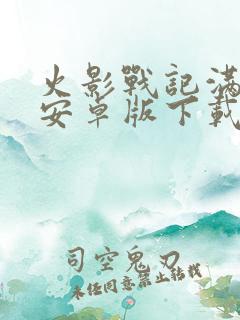 火影戰記滿
安卓版下載
司空鬼刃
未经同意禁止转载